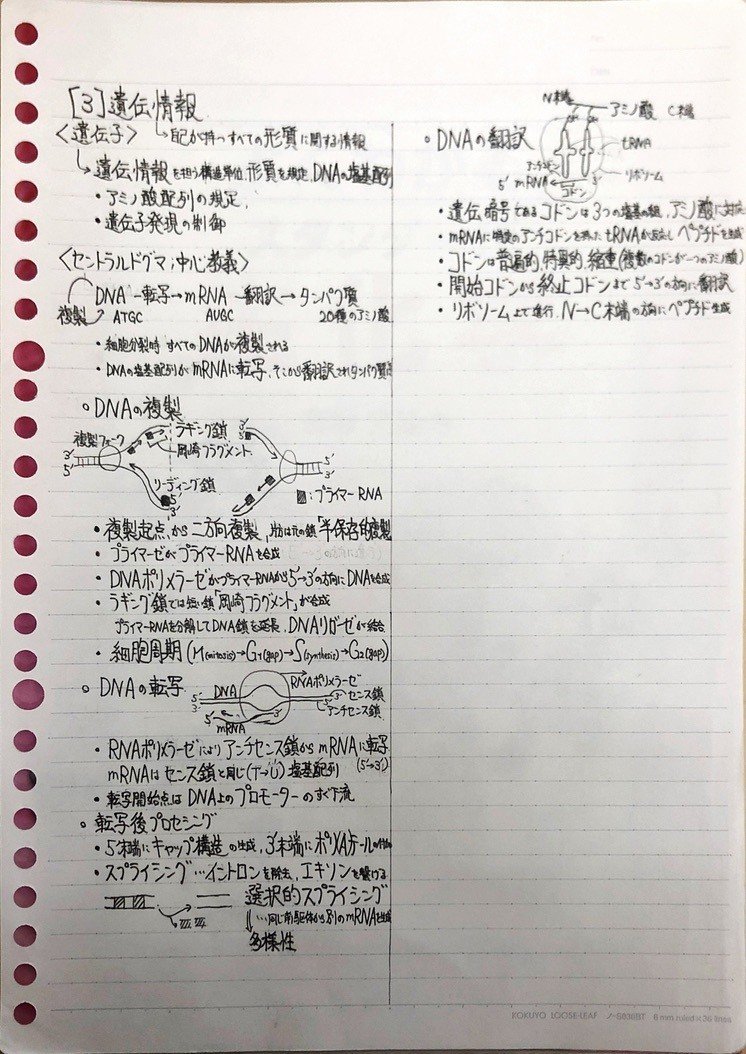 [3]遺伝情報
〈遺伝子〉 自己が持つすべての形質に関する情報
遺伝情報を担う構造単位,形質を規定,DNAの塩基配列
・アミノ酸配列の規定,
・遺伝子発現の制御
〈セントラルドグマ;中心教義〉
DNA―転写→mRNA―翻訳→タンパク質
複製 ATGC AUGC 20種のアミノ酸
・細胞分裂時すべてのDNAが複製される
・DNAの塩基配列がmRNAに転写,そこから翻訳されタンパク質
○DNAの複製
複製フォーク ラギング鎖 3′
岡崎フラグメント
3′ 5′
5′ 3′
リーディング鎖
5′
:プライマーRNA
・複製起点,から二方向複製,片方は元の鎖「半保存的複製
・プライマーゼがプライマーRNAを合成
・DNAポリメラーゼがプライマーRNAから5′→3′の方向にDNAを合成
・ラギング鎖では短い鎖「岡崎フラグメント」が合成
プライマーRNAを分解してDNA鎖を延長,DNAリガーゼが結合
・細胞周期(M(mitosis)→G1(gap)→S(synthesis)→G2(gap))
○DNAの転写
RNAポリメラーゼ
5′ DNA 3′ センス鎖
3′ 5′ アンチセンス鎖
5′ 3′
mRNA
・RNAポリメラーゼによりアンチセンス鎖からmRNAに転写
mRNAはセンス鎖と同じ(T→U)塩基配列 (5′→3′)
・転写開始点はDNA上のプロモーターのすぐ下流
○転写後プロセシング
・5′末端にキャップ構造の生成,3′末端にポリ(A)テールの付加
・スプライシング…イントロンを除去,エキソンを繋げる
選択的スプライシング
…同じ前駆体から別のmRNAを生成
多様性
○DNAの翻訳
N末端 アミノ酸 C末端
tRNA
アンチコドン
リボソーム
5′ mRNA 3′
コドン
・遺伝暗号であるコドンは3つの塩基の組,アミノ酸に対応
・mRNAに特定のアンチコドンを持ったtRNAが反応しペプチドを生成
・コドンは普遍的,特異的,縮重(複数のコドンが一つのアミノ酸)
・開始コドンから終止コドンまで5′→3′の方向に翻訳
・リボソーム上で進行,N→C末端の方向にペプチド生成
KOKUYO LOOSE-LEAF ノ-S836BT 6 mm ruled×36 lines